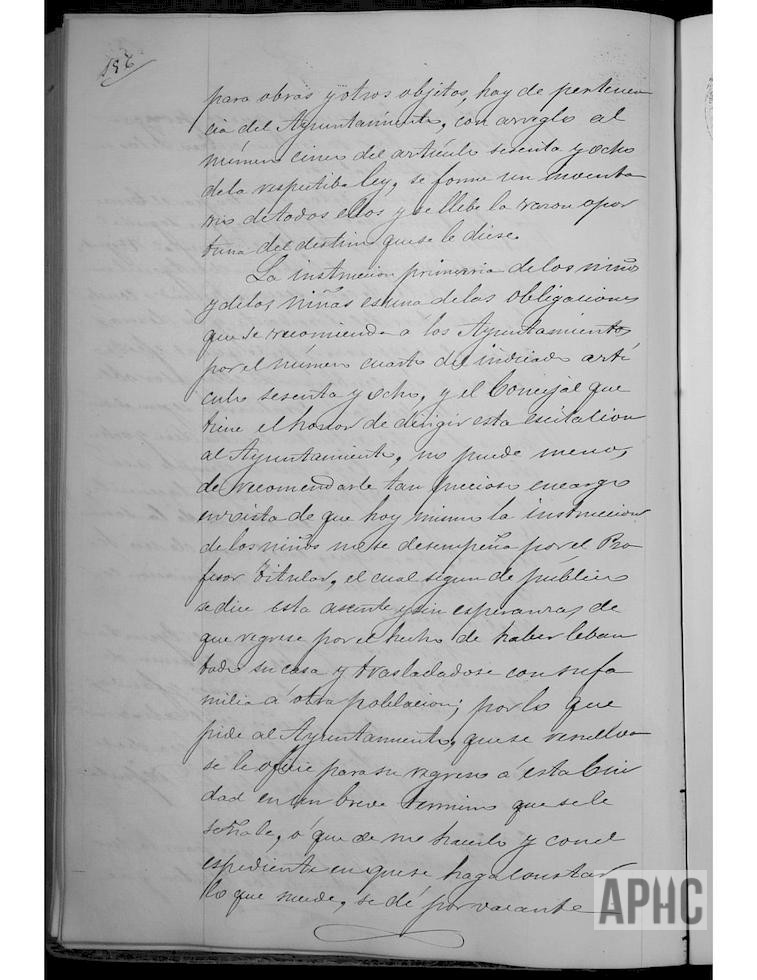 para obras y otros objetos, hay de pertenen
cia del Ayuntamiento, con arreglo al
número cinco del artículo sesenta y ocho
de la respetiba ley, se forme un inventa
rio de todos ellos y se llebe la razon opor
tuna del destino que se le diese.
La instrucion primaria de los niños
y de las niñas es una de las obligaciones
que se recomienda a los Ayuntamientos
por el número cuarto del indicado artí
culo sesenta y ocho, y el Concejal que
tiene el honor de dirigir esta escitacion
al Ayuntamiento, no puede menos
de recomendarle tan precioso encargo
en vista de que hoy mismo la instruccion
de los niños no se desempeña por el Pro
fesor titular, el cual segun de público
se dice esta ausente y sin esperanzas de
que regrese por el hecho de haber leban
tado su casa y trasladadose con su fa
milia á otra poblacion; por lo que
pide al Ayuntamiento, que se resuelva
se le oficie para su regreso á esta Ciu
dad en un breve termino que se le
señale, ó que de no hacerlo y con el
espediente en que se haga constar
lo que sucede, se dé por vacante
APHC